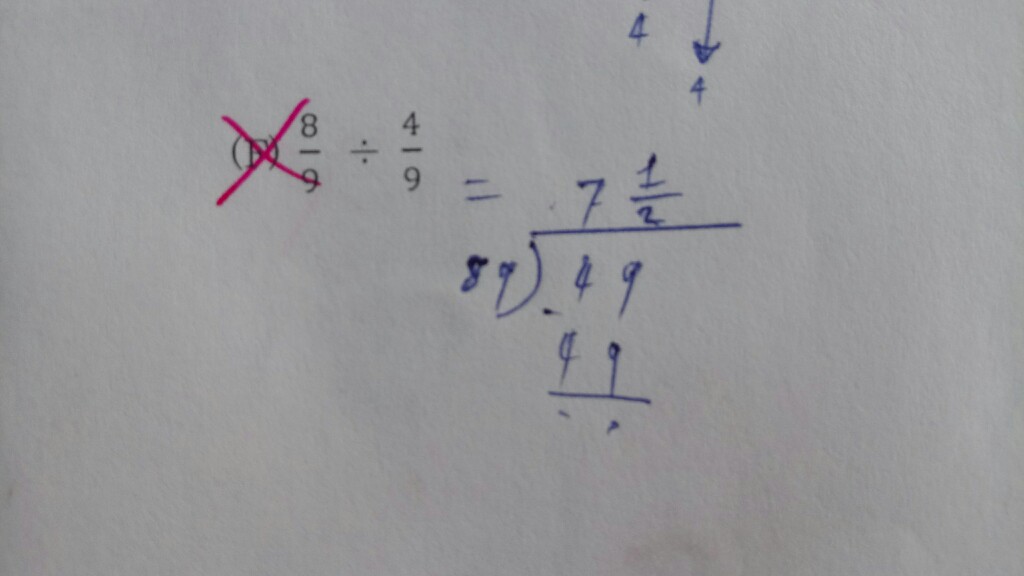 4
4
8/9 ÷ 4/9 = 7 1/2
89) 49
49